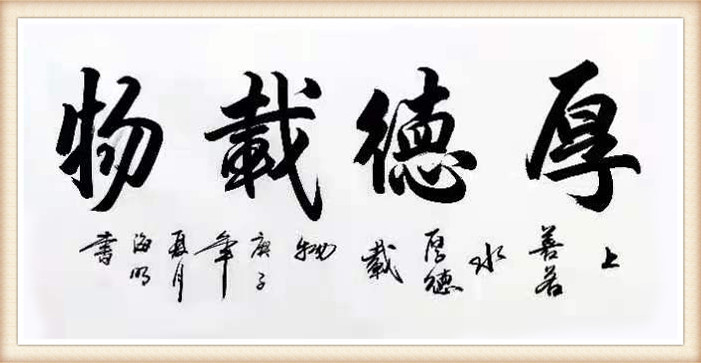 厚德載物
上善若水厚德載物庚子年夏月海明書